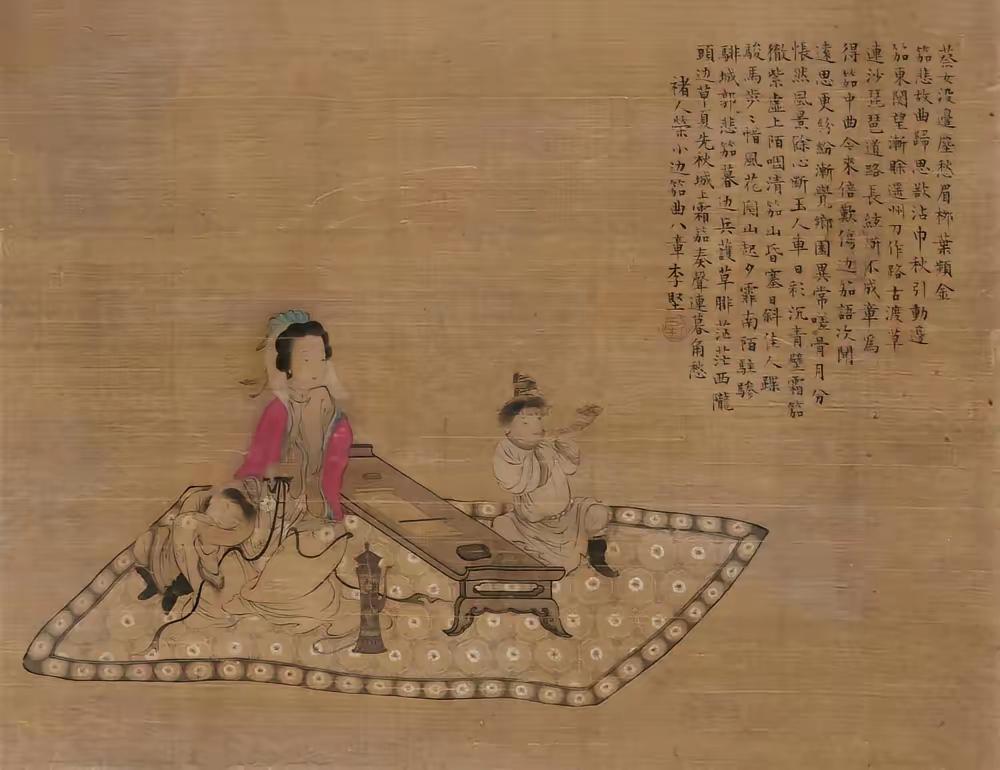 蔡女沒邊塵愁眉柳葉頻金
笳悲故曲歸思欲沾巾秋引動邊
笳東関望漸賒還州刀作路古渡草
連沙琵琶道路長絃斷不成章為
得笳中曲令來倍歎傷边笳語次聞
遠思更紛紛漸覺鄉園異常嗟骨月分
悵然風景除心斷玉人車日彩沉青壁霜笳
徹紫虛上陌咽清笳山昏塞日斜佳人
駿馬步〻惜風花関山起夕霏南陌駐驂
騑城郭悲笳暮边兵護草腓茫茫西隴
頭边草夏先秋城上霜笳奏聲連暮角愁
褚人榮小边笳曲八章李堅